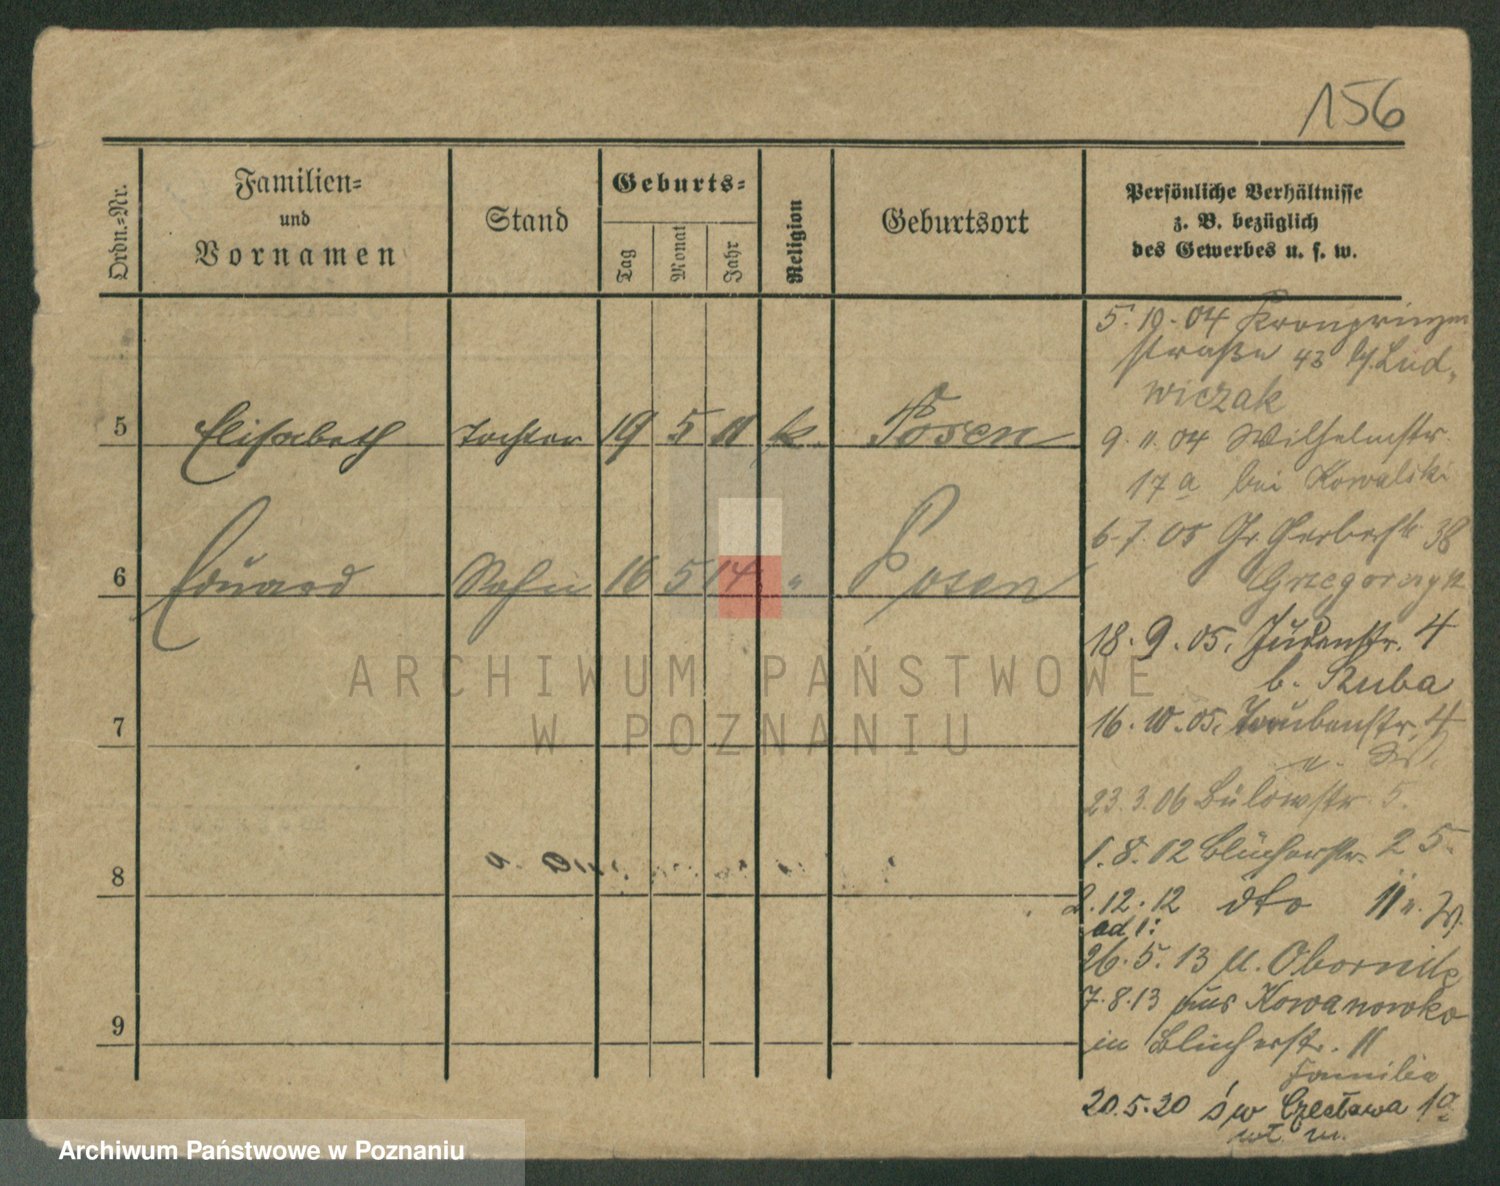 156
Ordn.-Nr.
Familien-
und
Vornamen
Stand
Geburts-
Tag
Monat
Jahr
Religion
Geburtsort
Persönliche Verhältnisse
z. B. bezüglich
des Gewerbes u. s. w.
5 Elisabeth Tochter 19 5 11 k. Posen
6 Eduard Sohn 16 5 14 " Posen
7
8
9
5. 10. 04 Kronprinzen
straße 43 b/. Lud-
wiczak
9. 11. 04 Wilhelmstr.
17 a bei Kowalski
6. 7. 05 Gr. Gerberstr. 38
18. 9. 05. Judenstr. 4
b. Kuba
16. 10. 05. Taubenstr. 4
23. 3. 06 Bülowstr. 5.
1. 8. 12 Blücherstr. 25.
2. 12. 12 dto 11 u. W.
ad 1:
26. 5. 13 n. Obornik
7. 8. 13 aus Kowanowko
in Blücherstr. 11
Familie
20. 5. 20 św Czesława 10
wł. m.
ARCHIWUM PAŃSTWOWE
W POZNANIU
Archiwum Państwowe w Poznaniu